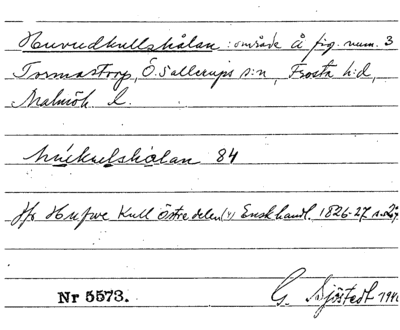 Huvudkullshålan: område å fig. num. 3
Tormastorp, Ö. Sallerups s:n, Frosta h:d,
Malmöh. l.
84
Jfr Hufwe Kull Östre delen (v) Enskhandl. 1826-27
Nr 5573. G. Sjöstedt